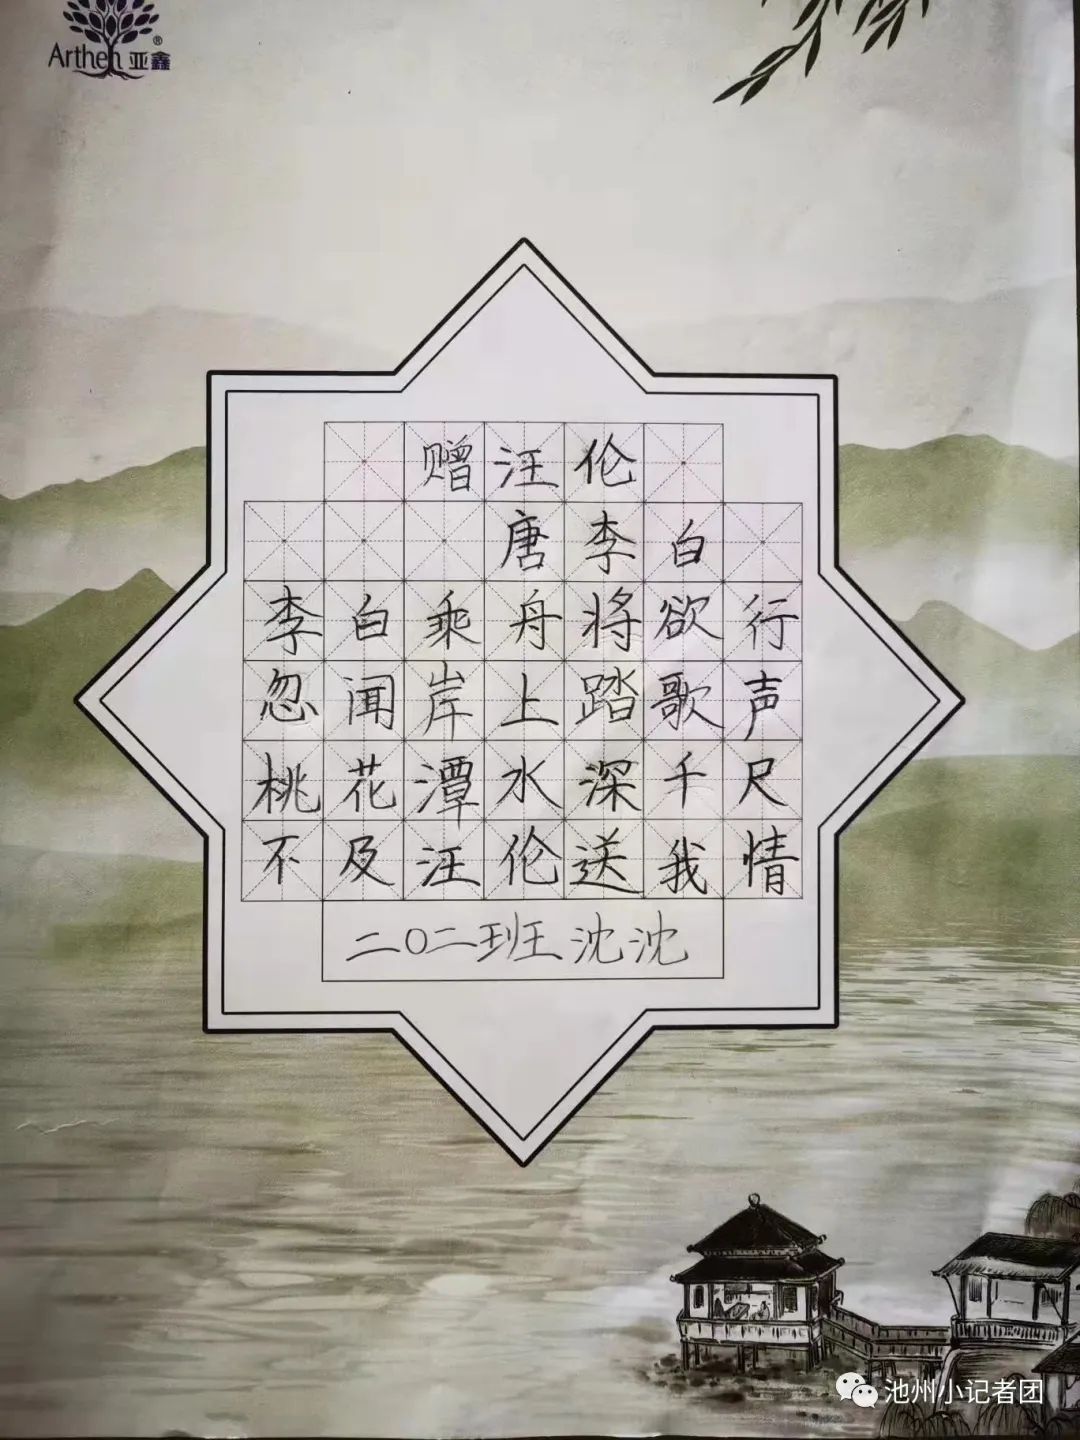 Arthen 亚鑫®
赠汪伦
唐 李白
李白乘舟将欲行
忽闻岸上踏歌声
桃花潭水深千尺
不及汪伦送我情
二〇二班 沈沈
池州小记者团